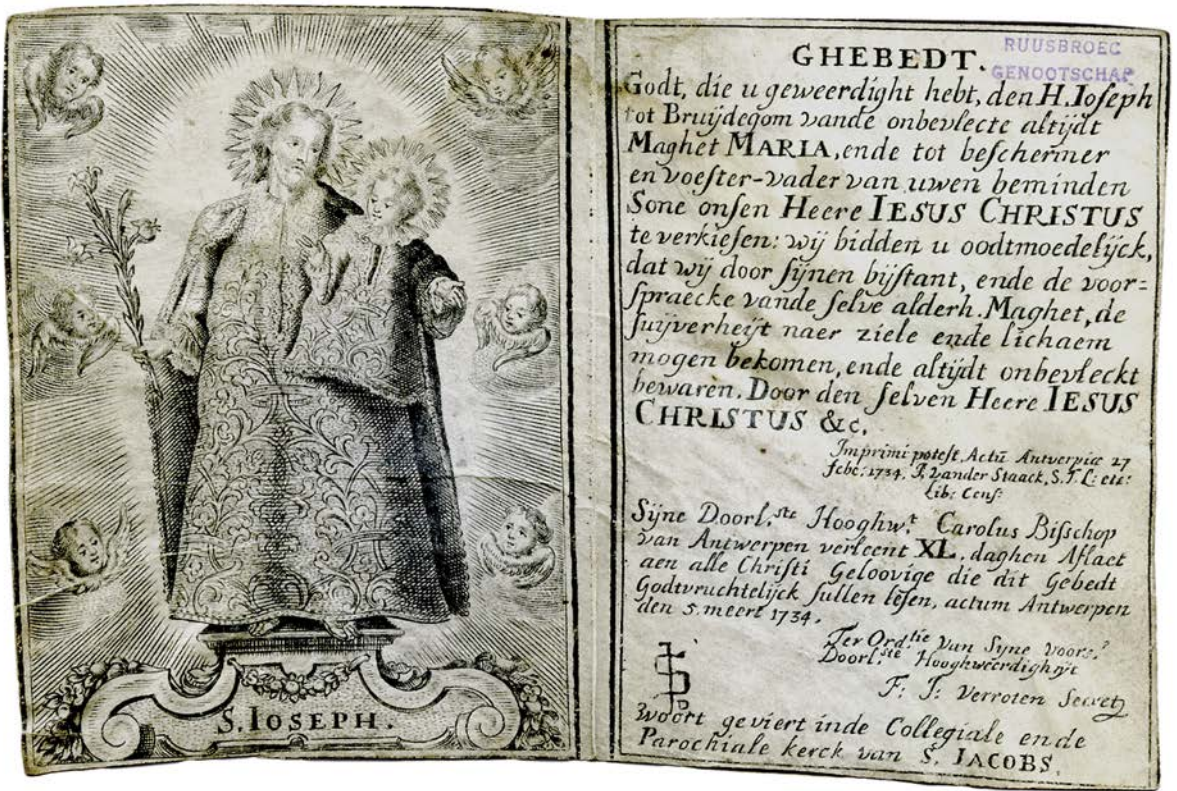 S. IOSEPH.
RUUSBROEC
GENOOTSCHAP
GHEBEDT.
Godt, die u geweerdight hebt, den H. Ioseph
tot Bruijdegom vande onbevlecte altijdt
Maghet MARIA, ende tot beschermer
en voester-vader van uwen beminden
Sone onsen Heere IESUS CHRISTUS
te verkiesen: wij bidden u oodtmoedelijck,
dat wij door sijnen bijstant, ende de voor=
spraecke vande selve alderh. Maghet, de
suijverheijt naer ziele ende lichaem
mogen bekomen, ende altijdt onbevleckt
bewaren. Door den selven Heere IESUS
CHRISTUS &c.
Imprimi potest, Actū Antverpiæ 27
febr: 1734. J. vander Staack, S. T. L: etc:
Lib: Cens:
Sijne Doorl.ste Hooghw.t Carolus Bisschop
van Antwerpen verleent XL. daghen Aflaet
aen alle Christi Geloovige die dit Gebedt
Godtvruchtelijck sullen lesen, actum Antwerpen
den 5. meert 1734.
Ter Ord.tie van Sijne voors.
Doorl.ste Hooghweerdigheijt
F: J: Verroten Secret
Woort geviert inde Collegiale ende
Parochiale kerck van S. IACOBS.